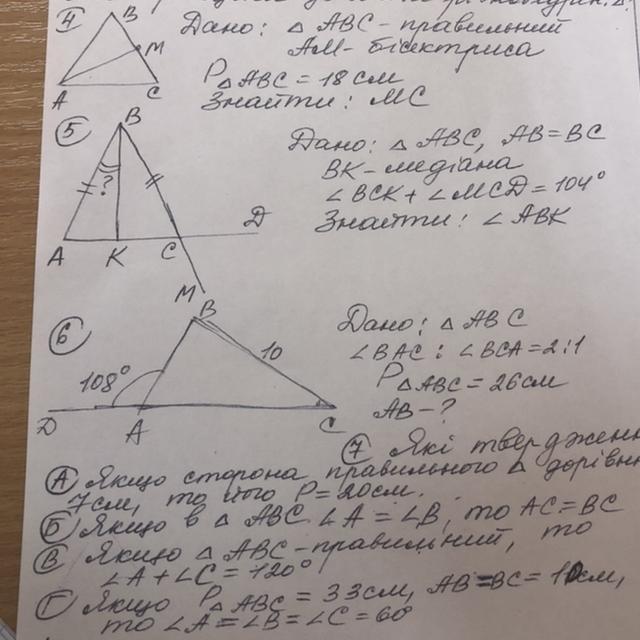 4
B
M
A
C
Дано: △ ABC - правильний
AM - бісектриса
P△ABC = 18 см
Знайти: MC
5
B
?
A K C D
M
Дано: △ ABC, AB = BC
BK - медіана
∠BCK + ∠MCD = 104°
Знайти: ∠ABK
6
B
10
108°
D A C
Дано: △ ABC
∠BAC : ∠BCA = 2:1
P△ABC = 26 см
AB - ?
7 Які твердженн
А Якщо сторона правильного △ дорівн
7см, то його P = 20см.
Б Якщо в △ ABC ∠A = ∠B, то AC = BC
В Якщо △ ABC - правильний, то
∠A + ∠C = 120°
Г Якщо P△ABC = 33см, AB = BC = 10см,
то ∠A = ∠B = ∠C = 60°